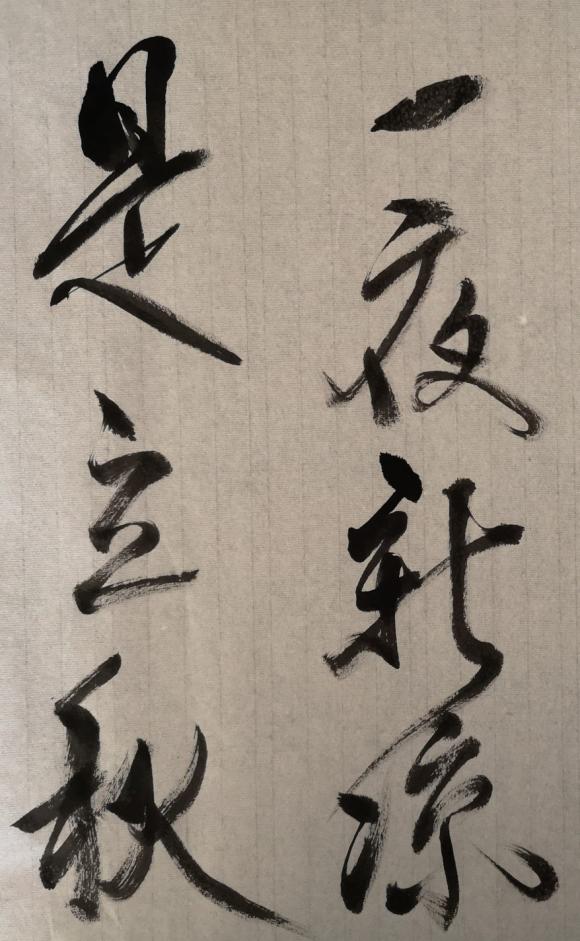 一夜新凉
是立秋